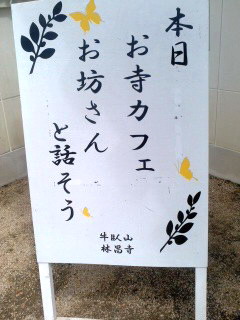 本日
お寺カフェ
お坊さん
と話そう
牛臥山
林昌寺